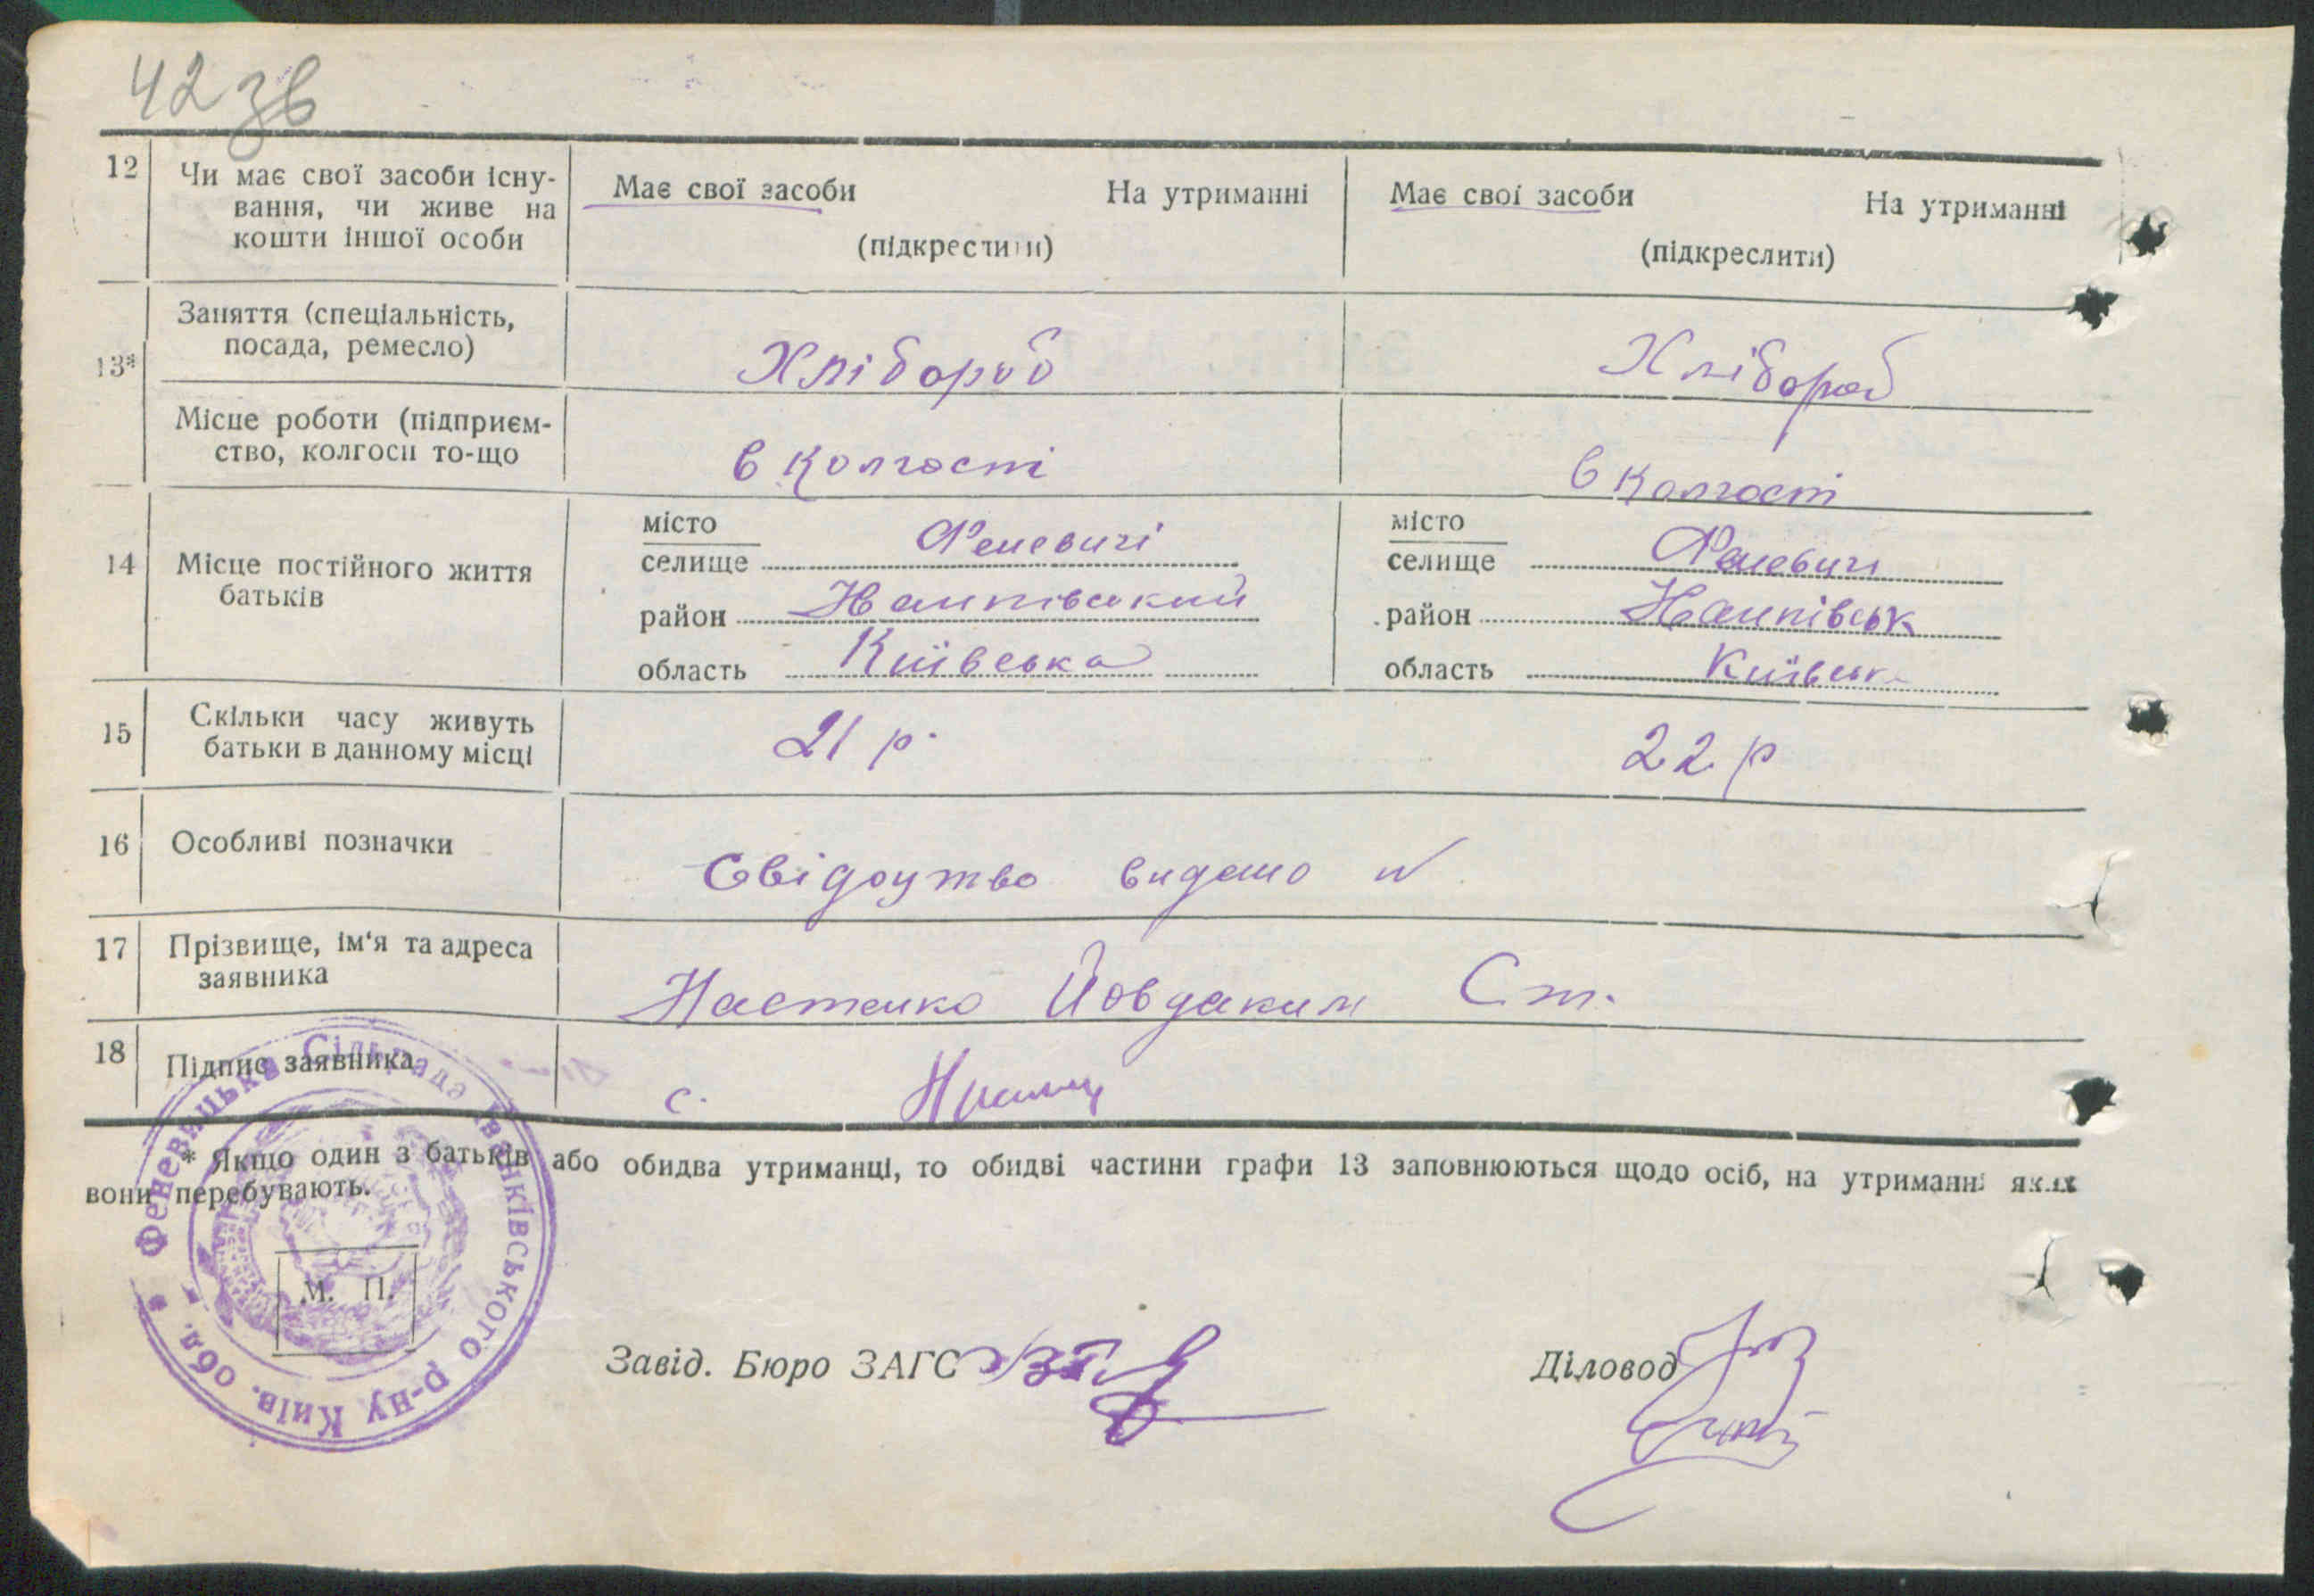 42 зв
12 Чи має свої засоби існу-
вання, чи живе на
кошти іншої особи
Має свої засоби На утриманні
(підкреслити)
Має свої засоби На утриманні
(підкреслити)
13* Заняття (спеціальність,
посада, ремесло)
Хлібороб
Хлібороб
Місце роботи (підприєм-
ство, колгосп то-що
в колгоспі
в колгоспі
14 Місце постійного життя
батьків
місто
селище Феневичі
район
область Київська
місто
селище Феневичі
район
область Київськ
15 Скільки часу живуть
батьки в данному місці
21 р.
22 р
16 Особливі позначки
Свідоцтво видано №
17 Прізвище, ім'я та адреса
заявника
Настенко Йовдаким Ст.
18 Підпис заявника
с.
* Якщо один з батьків або обидва утриманці, то обидві частини графи 13 заповнюються щодо осіб, на утриманні яких
вони перебувають.
Феневицька Сільрада Іванківського р-ну Київ. обл.
М. П.
Завід. Бюро ЗАГС
Діловод